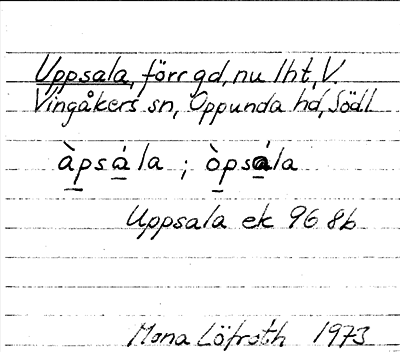 Uppsala, förr gd, nu lht, V.
Vingåkers sn, Oppunda hd, Södl
àpsála ; òpsála
Uppsala ek 96 8b
Mona Löfroth 1973